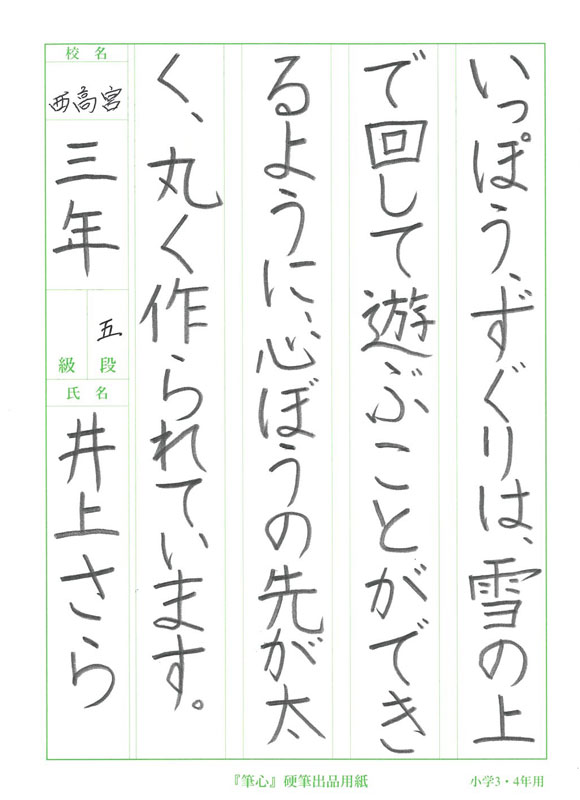 いっぽう、ずぐりは、雪の上
で回して遊ぶことができ
るように、心ぼうの先が太
く、丸く作られています。
校名
西高宮
三年
五段
級
氏名
井上さら
『筆心』硬筆出品用紙
小学3・4年用